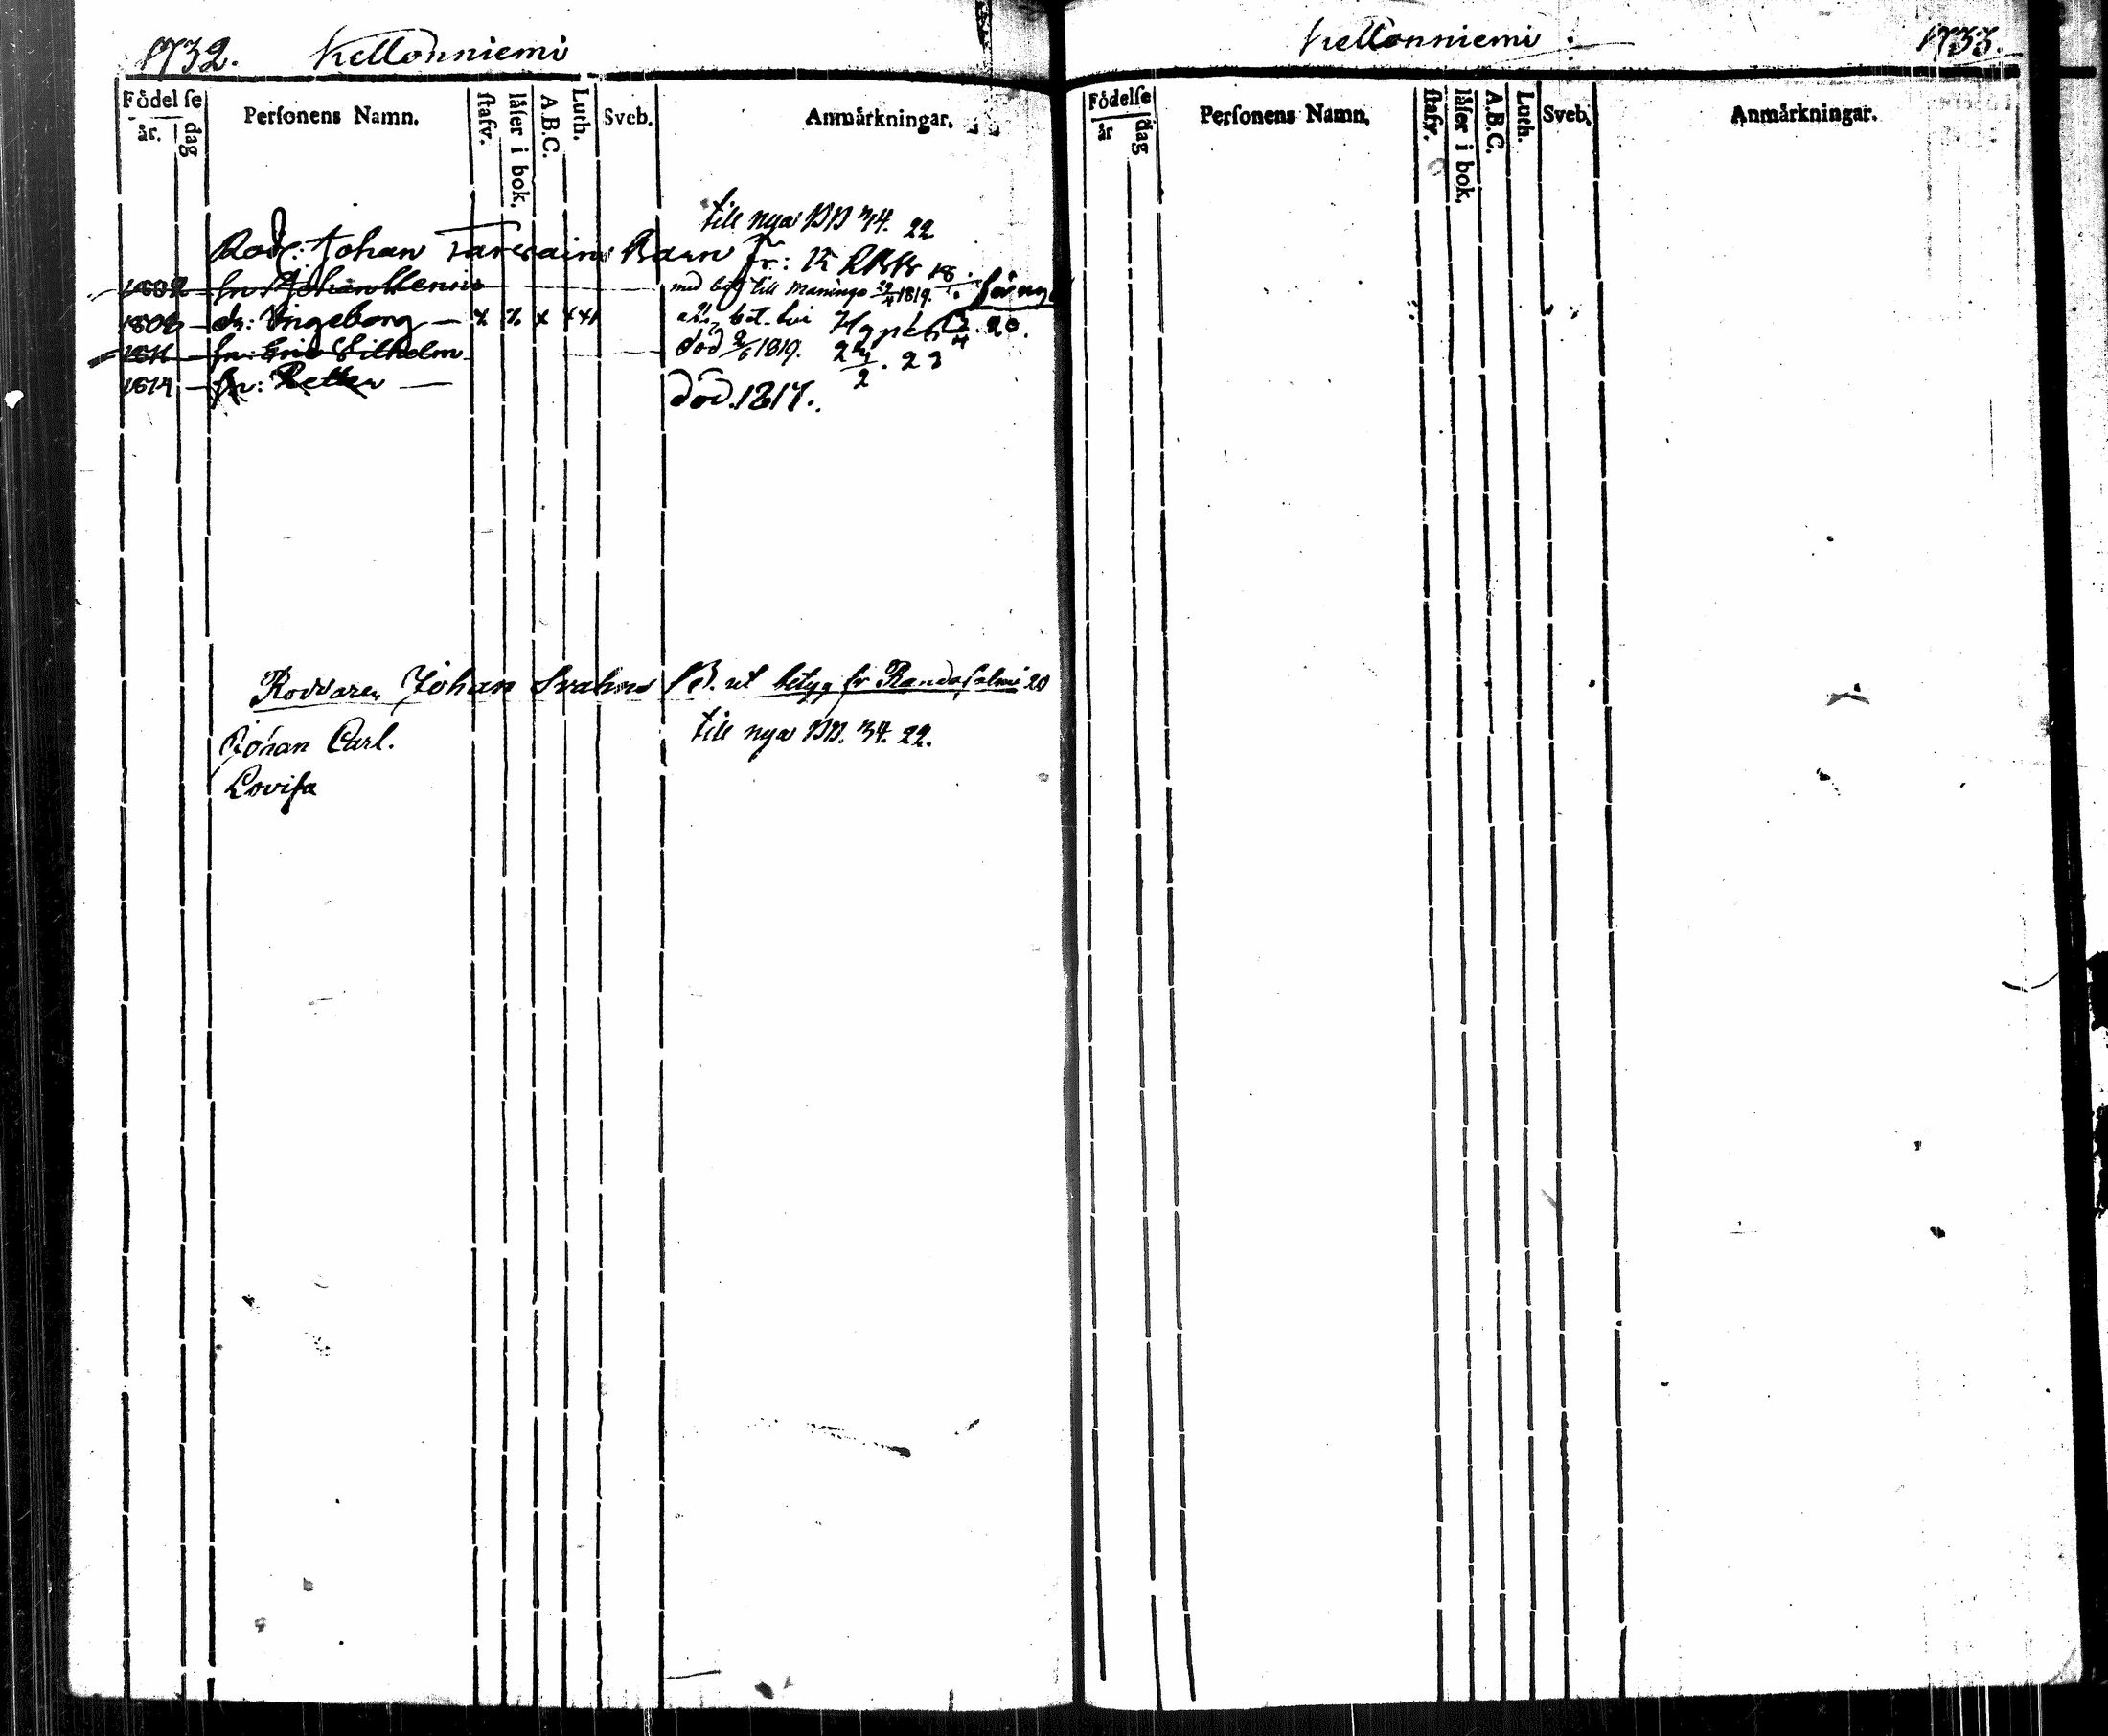 1732. Kellonniemi
Födelse
år. dag
Perſonens Namn.
ſtafv.
låſer i bok.
A.B.C.
Luth.
Sveb.
Anmärkningar.
till nya 34. 22
Rodd: Johan Barn fr:
1802 ſn: Johan Henric med bet till Maninga 1819.
1808 dr: Ingeborg x x x x 20.
1811 ſn: Eric Vilhelm död 2/6 1819. 24/2. 23
1814 ſn: Petter död. 1817.
Roddaren Johan Svahns B. ut betyg fr Randaſalmi 20
Johan Carl. till nya 34. 22.
Loviſa
Kellonniemi 1733.
Födelſe
år dag
Perſonens Namn.
ſtafv.
låſer i bok.
A.B.C.
Luth.
Sveb.
Anmärkningar.